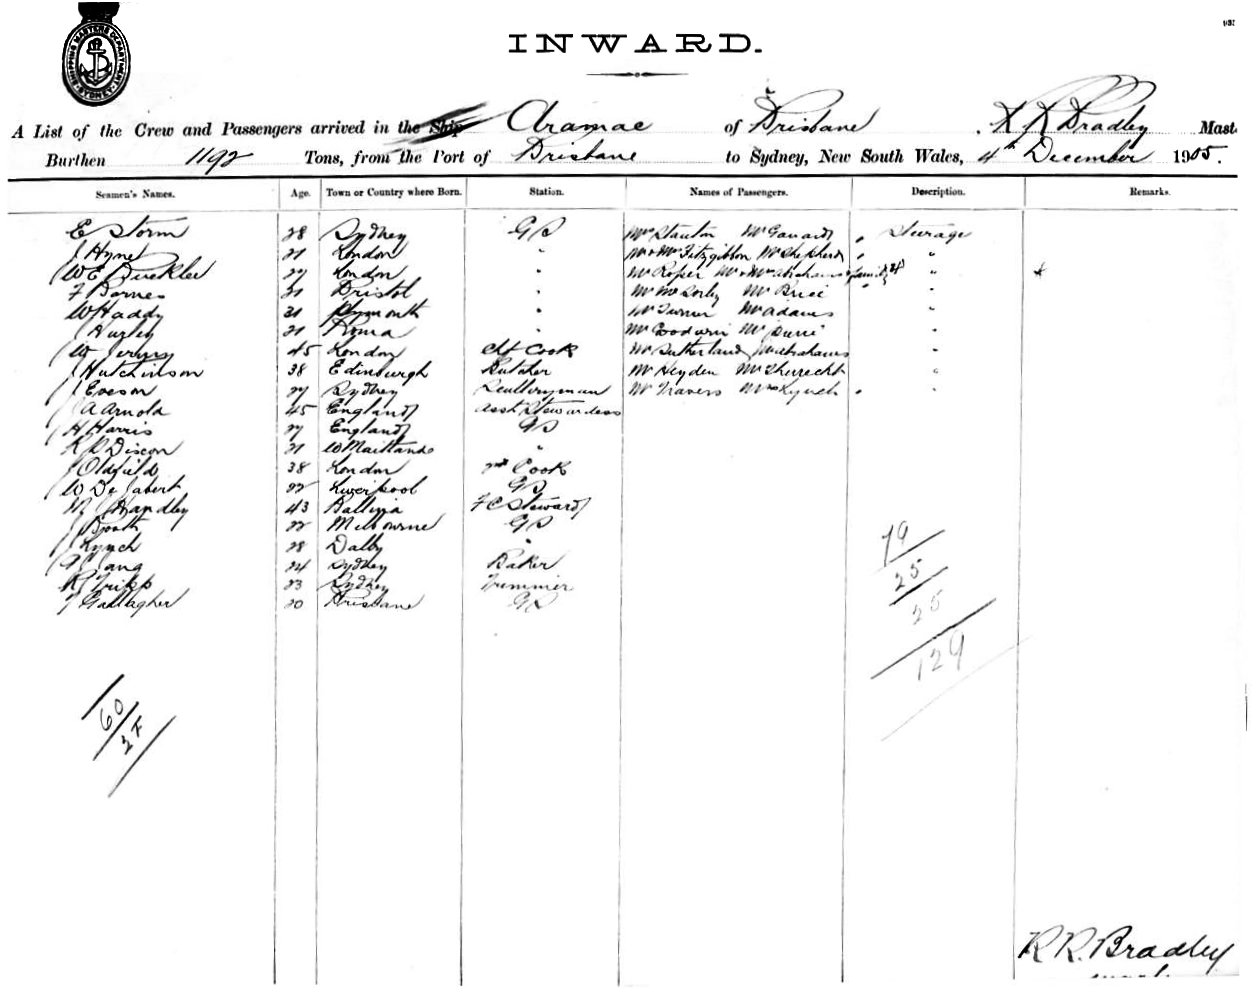 SHIPPING MASTERS DEPARTMENT SYDNEY
INWARD.
A List of the Crew and Passengers arrived in the Ship Aramac of Brisbane, R R Bradley Mast
Burthen 1192 Tons, from the Port of Brisbane to Sydney, New South Wales, 4th December 1905.
Seamen's Names. Age. Town or Country where Born. Station. Names of Passengers. Description. Remarks.
E Storm 28 Sydney GS Mrs Stanton Mr " Steerage
J Hynes 21 London " Mr & Mrs Fitzgibbon Mr Shepherd " "
W E Buckler 27 London " Mr Roper Mr & Mrs Abrahams & family " *
F Barnes 21 Bristol " Mr McSorley Mr Brice "
W Haddy 21 Plymouth " Mr Turner Mr Adams "
J Hurley 21 Roma " Mr Goodwin Mr "
W 45 London Chf Cook Mr Sutherland Mr Abrahams "
J Hutchinson 38 Edinburgh Butcher Mr Heyden Mr "
J Eveson 27 Sydney Sculleryman Mr Travers Mrs Lynch " "
A Arnold 45 England Asst Stewardess
H Harris 27 England GS
R P Discon 21 W Maitland "
J Oldfield 38 London 2nd Cook
W De Jabert 22 Liverpool GS
M J Handley 43 Ballina F C Steward
J Booth 22 Melbourne GS
J Lynch 28 Dalby "
24 Sydney Baker
R Tripp 23 Sydney Trimmer
J Gallagher 20 Brisbane GS
79
25
25
129
60
27
R R. Bradley